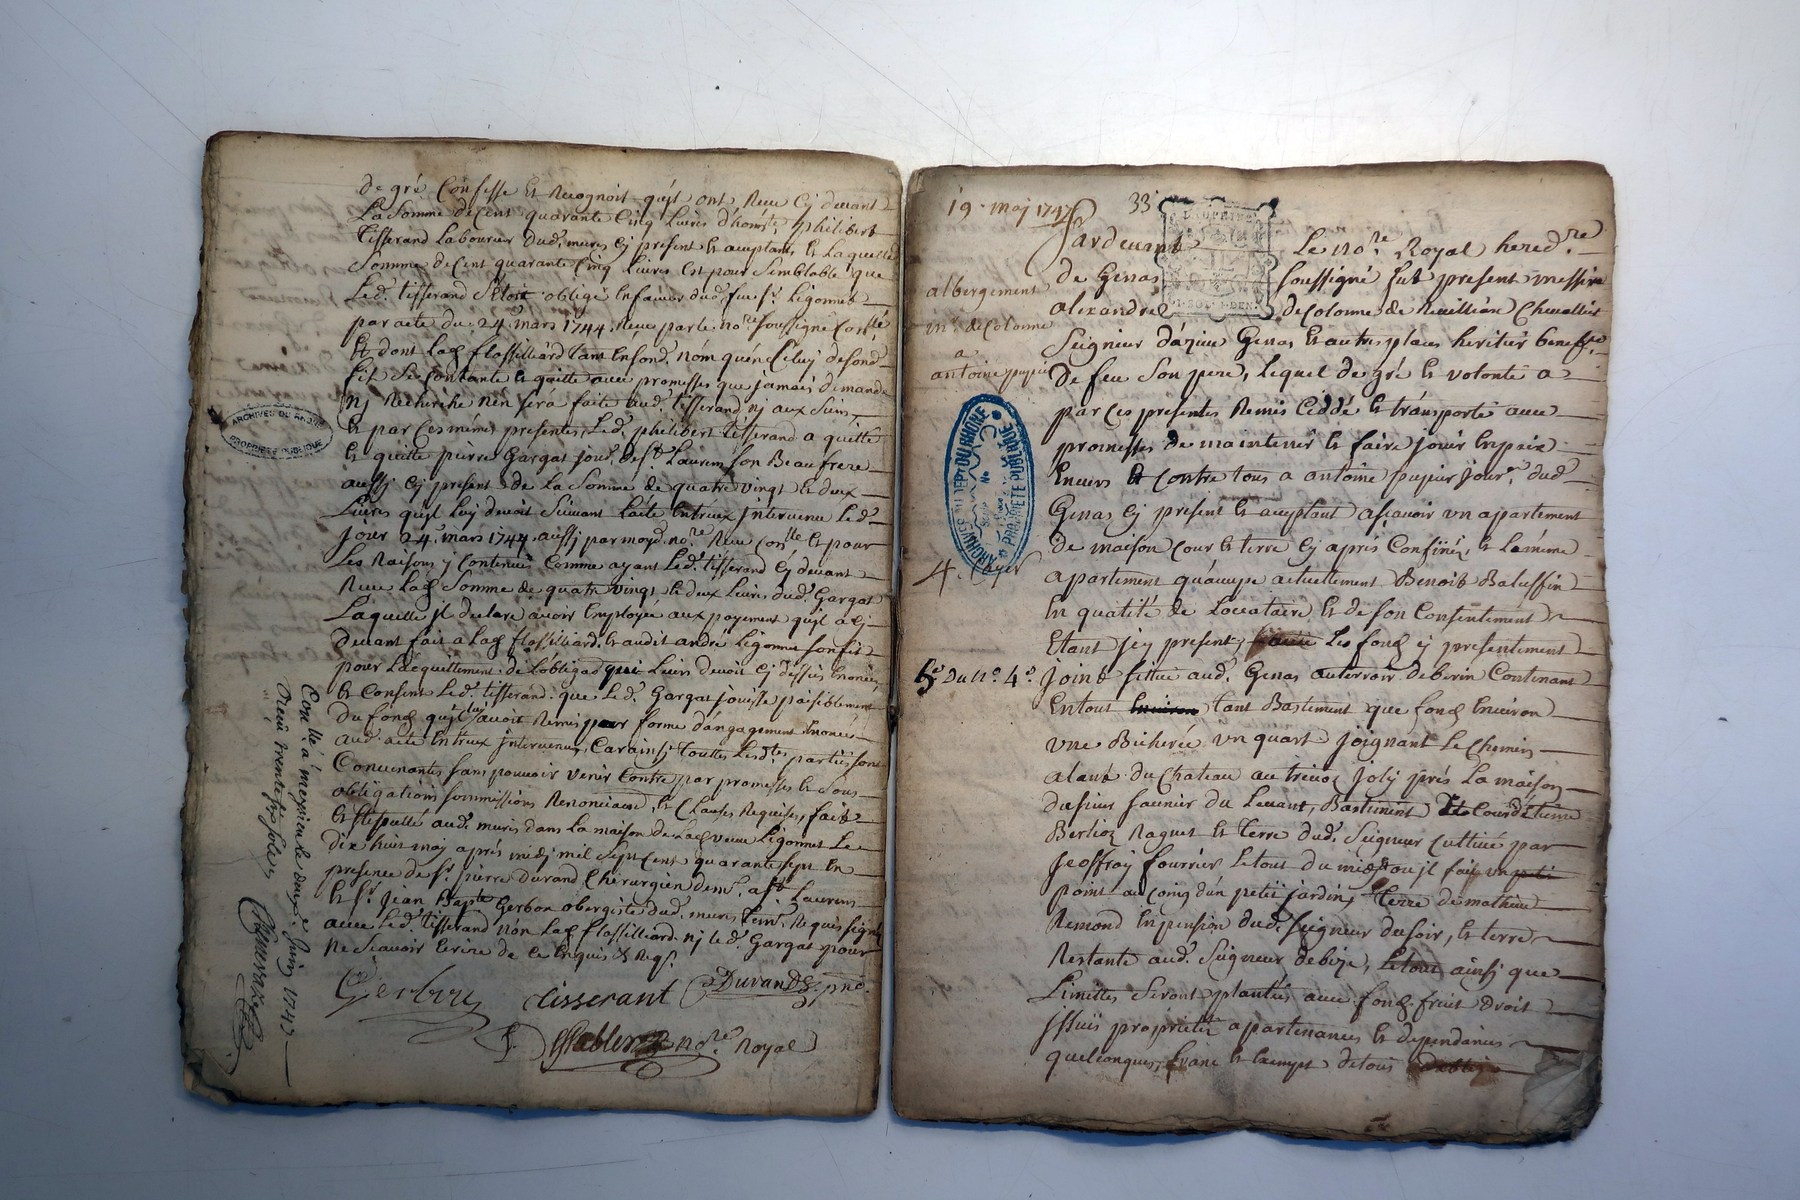 de gré Confesse et Recognoit qu'jl ont Receu Cy devant
La Somme de Cent quarante Cinq Livres d'honte. philibert
Tisserand Laboureur dud. mures Cy present et acceptant et Laquelle
Somme de Cent quarante Cinq Livres est pour Semblable que
Led. tisserand S'étoit obligé En faveur dud. feu Sr. Ligonnet
par acte du 24. mars 1744. Receu par le nore. soussigné Conllé
Et dont Lad. flossilliard tant En son d. nom qu'en Celuy de sond.
fils Se Contante et quitte avec promesses que jamais demande
Nj Recherche n'en sera faite aud. tisserand nj aux Siens
Et par Ces mêmes presentes, Led. philibert tisserand a quitté
et quitte pierre Gargat Jour. de St. Laurem son Beaufrere
aussj Cy present de La Somme de quatre vingt et deux
Livres qu'jl Luj devoit Suivant L'acte Entreux jntervenu Led.
jour 24. mars 1744. aussj par moyd. nore. Receu Conllé et pour
Les Raisons y Contenues Comme ayant Led. tisserand Cy devant
Receu Lad. Somme de quatre vingt et deux Livres dud. Gargat
Laquelle jl declare avoir Employée aux payement qu'jl a Cy
Devant fait a Lad. flossilliard. et audit andré Ligonnet son fils
pour L'acquittement de L'obligaõn qui Leurs devoit Cy dessus Enoncée,
Et Consent Led. tisserand que Led. Gargat jouisse paisiblement
Du fond qu'jl luj avoit Remis pour forme d'angagement Enoncé
aud. acte Entreux jntervenu, Car ainsj toutes Lesdtes. parties sont
Convenantes sans pouvoir venir Contre par promesses et sous
obligations soummissions Renonciaõns, et Clauses Requises, fait
Et stipullé aud. mures dans La maison de Lad. veuve Ligonnet Le
dix huit may après midj mil Sept Cent quarante Sept En
presence de Sr. pierre Durand Chirurgien demt. a St. Laurens
et Sr. Jean Bapte Gerbon obergiste dud. mures Temt. Requis signés
avec Led. tisserand non Lad. flossilliard. nj led. Gargat pour
Ne Sçavoir Ecrire de Ce Enquis & Reqs.
Gerbon tisserant Durand pnt.
nore. Royal
Conllé à meyzieu le douze Juin 1747
Receu trente six sols
ARCHIVES DU RHONE
PROPRIETE PUBLIQUE
19. may 1747
33
Albergement
mr. de Colonne
a
antoine pupier
ARCHIVES DU DEPT DU RHONE
PROPRIETE PUBLIQUE
4. Cayer
5e. Du No. 4o.
Pardevant Le nore. Royal heredre.
de Genas soussigné fut present messire
alexandre de Colonne de Chevallier
Seigneur d'azieu Genas et autres places heritier beneffre.
De feu Son pere, Lequel de gré et volonté a
par Ces presentes Remis Ceddé et transporté avec
promesses de maintenir et faire jouir En paix
Envers et Contre tous a antoine pupier Jour. dud.
Genas Cy present et acceptant asçavoir un apartement
de maison Cour et terre Cy après Confiné, et Le même
apartement qu'occupe actuellement Benoit Baluffin
En qualité de Locataire et de son Consentement
Etant jcy present, Les fond Cy presentement
joint sittué aud. Genas au terroir de berin Contenant
En tout Environ tant Bastiment que fond Environ
une Bicherée un quart joignant Le Chemin
alant du Chateau au trivoz joly près La maison
du Sieur faunier du Levant, Bastiment et Cour d'Etienne
Berlioz Raquet et terre dud. Seigneur Cultivée par
Jeoffroy fourrier Le tout du midj ou jl fait un
point au Coing d'un petit jardin, terre de mathieu
Remond En pension dud. Seigneur du soir, et terre
Restante aud. Seigneur de bize, Le tout ainsj que
Limittes Seront plantées avec fond, fruit Droit
Jssues proprietté apartenances et dependances
quelconques, franc et Exempt de tous